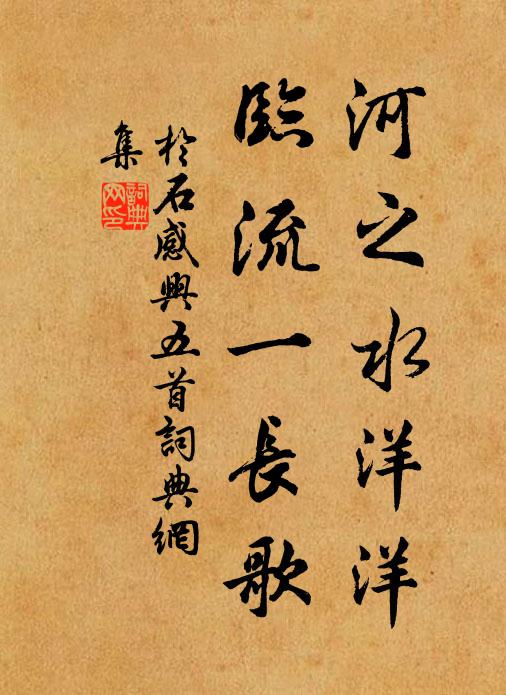 河之水洋洋
臨流一長歌
於石感興五首詞典網
集
詞典網印